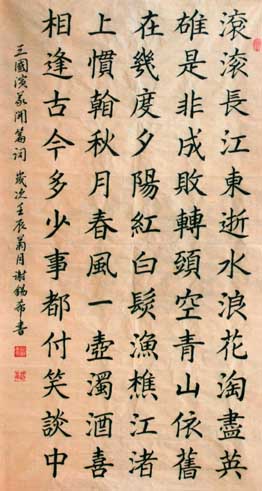 滾滾長江東逝水浪花淘盡英
雄是非成敗轉頭空青山依舊
在幾度夕陽紅白髮漁樵江渚
上慣翰秋月春風一壺濁酒喜
相逢古今多少事都付笑談中
三國演義開篇詞 歲次壬辰菊月謝錫希書